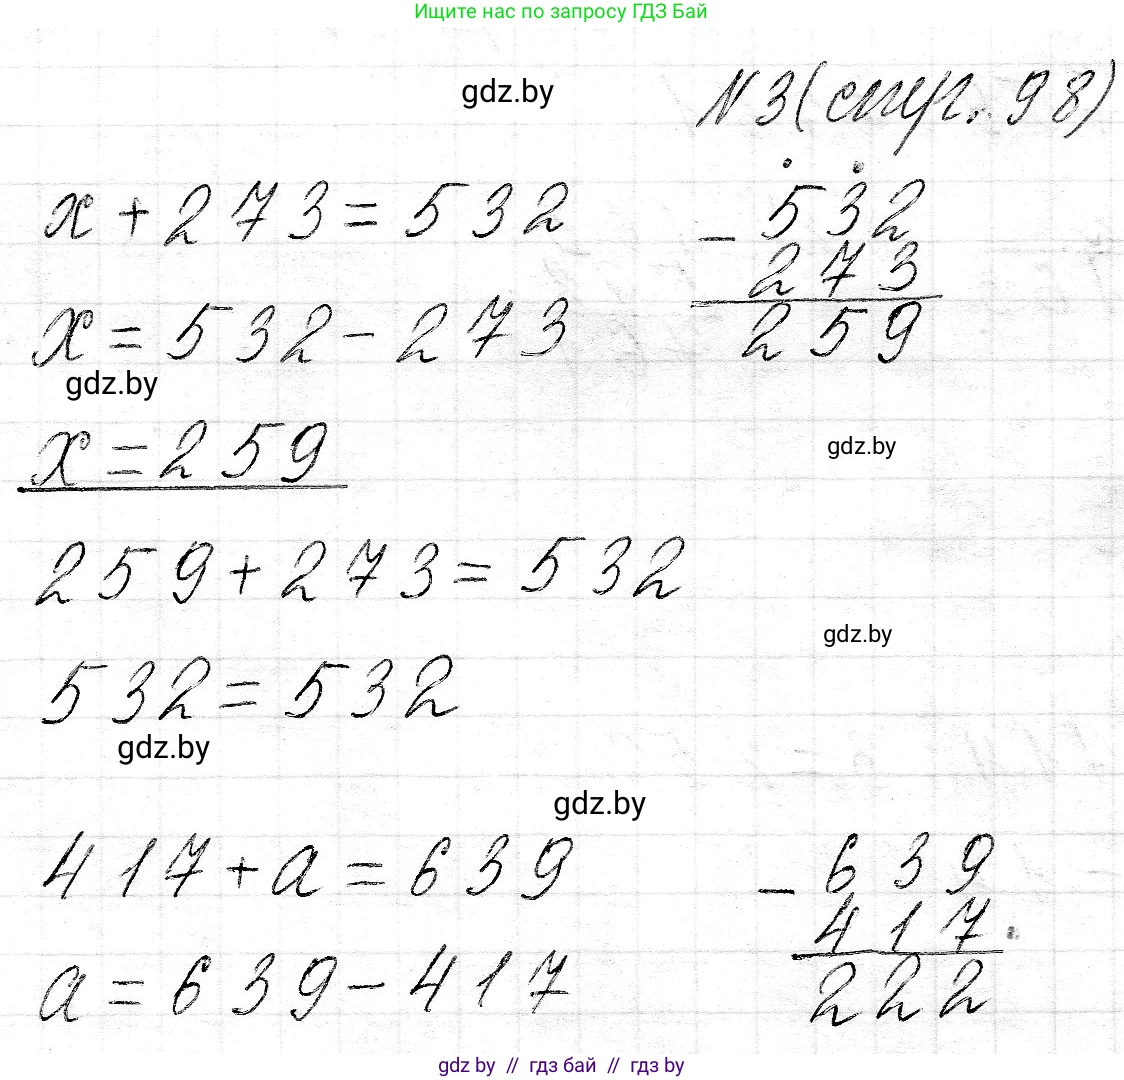 Ищите нас по запросу ГДЗ Бай
gdz.by
№3(стр. 98)
x + 273 = 532
x = 532 - 273
gdz.by
x = 259
- 532
273
259
gdz.by
259 + 273 = 532
gdz.by
532 = 532
gdz.by
gdz.by
417 + a = 639
a = 639 - 417
- 639
417
222
gdz.by // гдз бай // гдз by